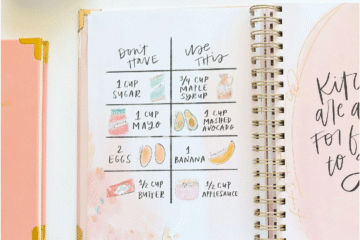 Don't HAVE
Use This
1 CUP SUGAR
3/4 CUP MAPLE SYRUP
1 CUP MAYO
1 CUP MASHED AVOCADO
2 EGGS
1 BANANA
1/2 CUP BUTTER
1/2 CUP APPLESAUCE
Kit
are a
For
to